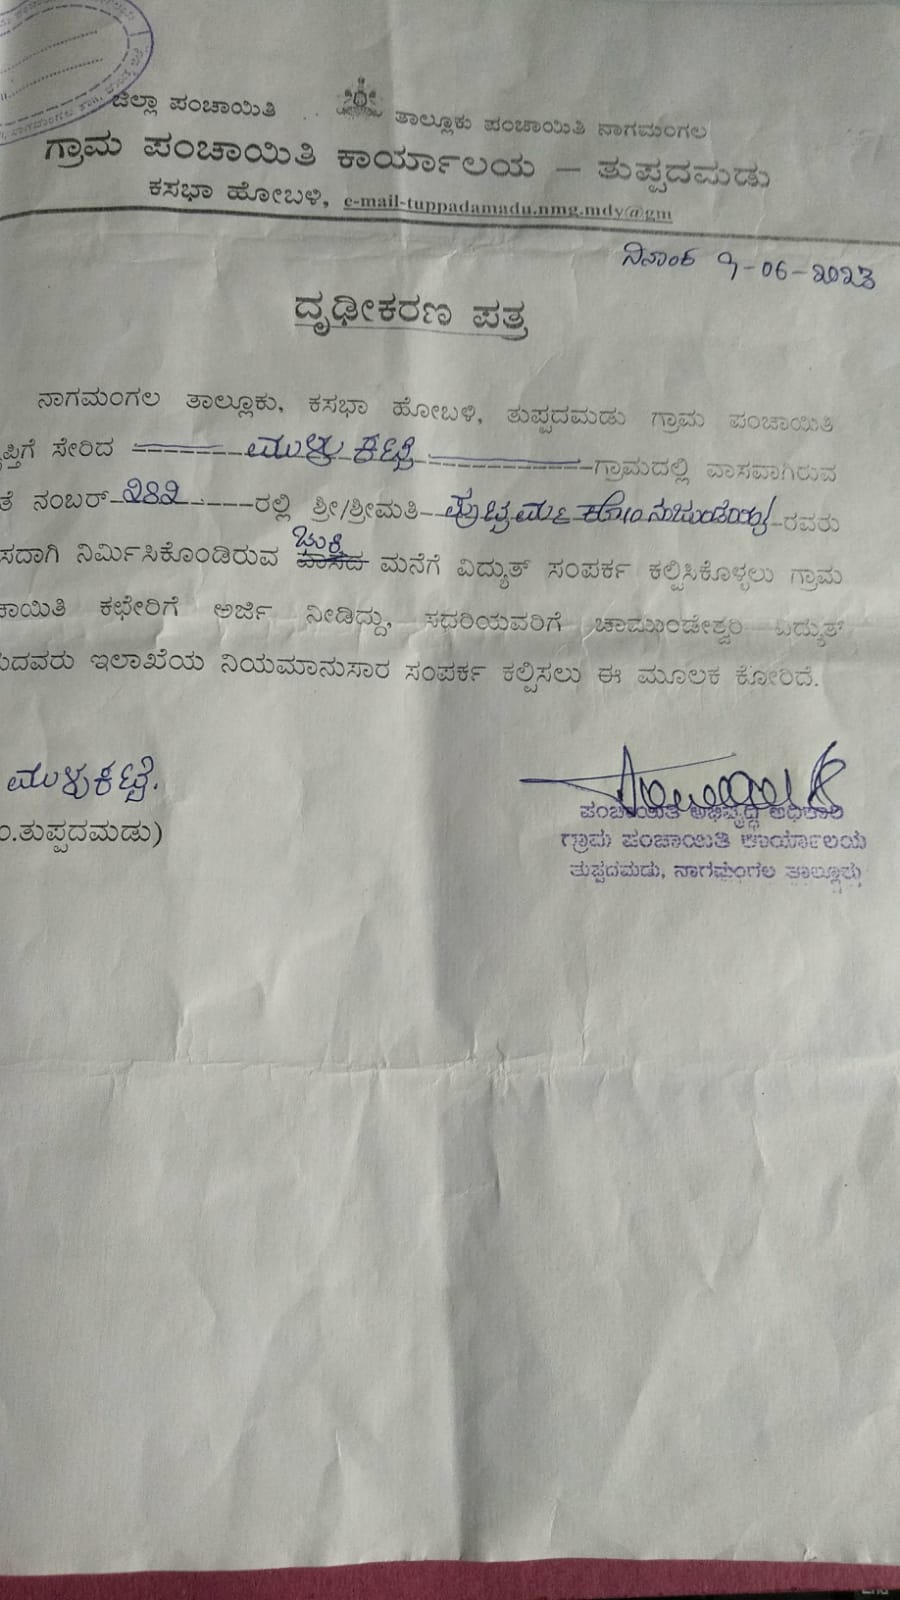 ಜಿಲ್ಲಾ ಪಂಚಾಯಿತಿ ತಾಲ್ಲೂಕು ಪಂಚಾಯಿತಿ ನಾಗಮಂಗಲ
ಗ್ರಾಮ ಪಂಚಾಯಿತಿ ಕಾರ್ಯಾಲಯ – ತುಪ್ಪದಮಡು
ಕಸಭಾ ಹೋಬಳಿ, e-mail-tuppadamadu.nmg.mdy@gm
ದಿನಾಂಕ 9-06-2023
ದೃಢೀಕರಣ ಪತ್ರ
ನಾಗಮಂಗಲ ತಾಲ್ಲೂಕು, ಕಸಭಾ ಹೋಬಳಿ, ತುಪ್ಪದಮಡು ಗ್ರಾಮ ಪಂಚಾಯಿತಿ
ಪ್ತಿಗೆ ಸೇರಿದ ಮುಳುಕಟ್ಟೆ ಗ್ರಾಮದಲ್ಲಿ ವಾಸವಾಗಿರುವ
ತೆ ನಂಬರ್ ೨೮೨ ರಲ್ಲಿ ಶ್ರೀ/ಶ್ರೀಮತಿ ಕೋಂ ರವರು
ಸದಾಗಿ ನಿರ್ಮಿಸಿಕೊಂಡಿರುವ ವಾಸದ ಮನೆಗೆ ವಿದ್ಯುತ್ ಸಂಪರ್ಕ ಕಲ್ಪಿಸಿಕೊಳ್ಳಲು ಗ್ರಾಮ
ಾಯಿತಿ ಕಛೇರಿಗೆ ಅರ್ಜಿ ನೀಡಿದ್ದು, ಸಧರಿಯವರಿಗೆ ಚಾಮುಂಡೇಶ್ವರಿ ವಿದ್ಯುತ್
ದವರು ಇಲಾಖೆಯ ನಿಯಮಾನುಸಾರ ಸಂಪರ್ಕ ಕಲ್ಪಿಸಲು ಈ ಮೂಲಕ ಕೋರಿದೆ.
ಮುಳುಕಟ್ಟೆ.
ಂ.ತುಪ್ಪದಮಡು)
ಪಂಚಾಯಿತಿ ಅಭಿವೃದ್ಧಿ ಅಧಿಕಾರಿ
ಗ್ರಾಮ ಪಂಚಾಯಿತಿ ಕಾರ್ಯಾಲಯ
ತುಪ್ಪದಮಡು, ನಾಗಮಂಗಲ ತಾಲ್ಲೂಕು